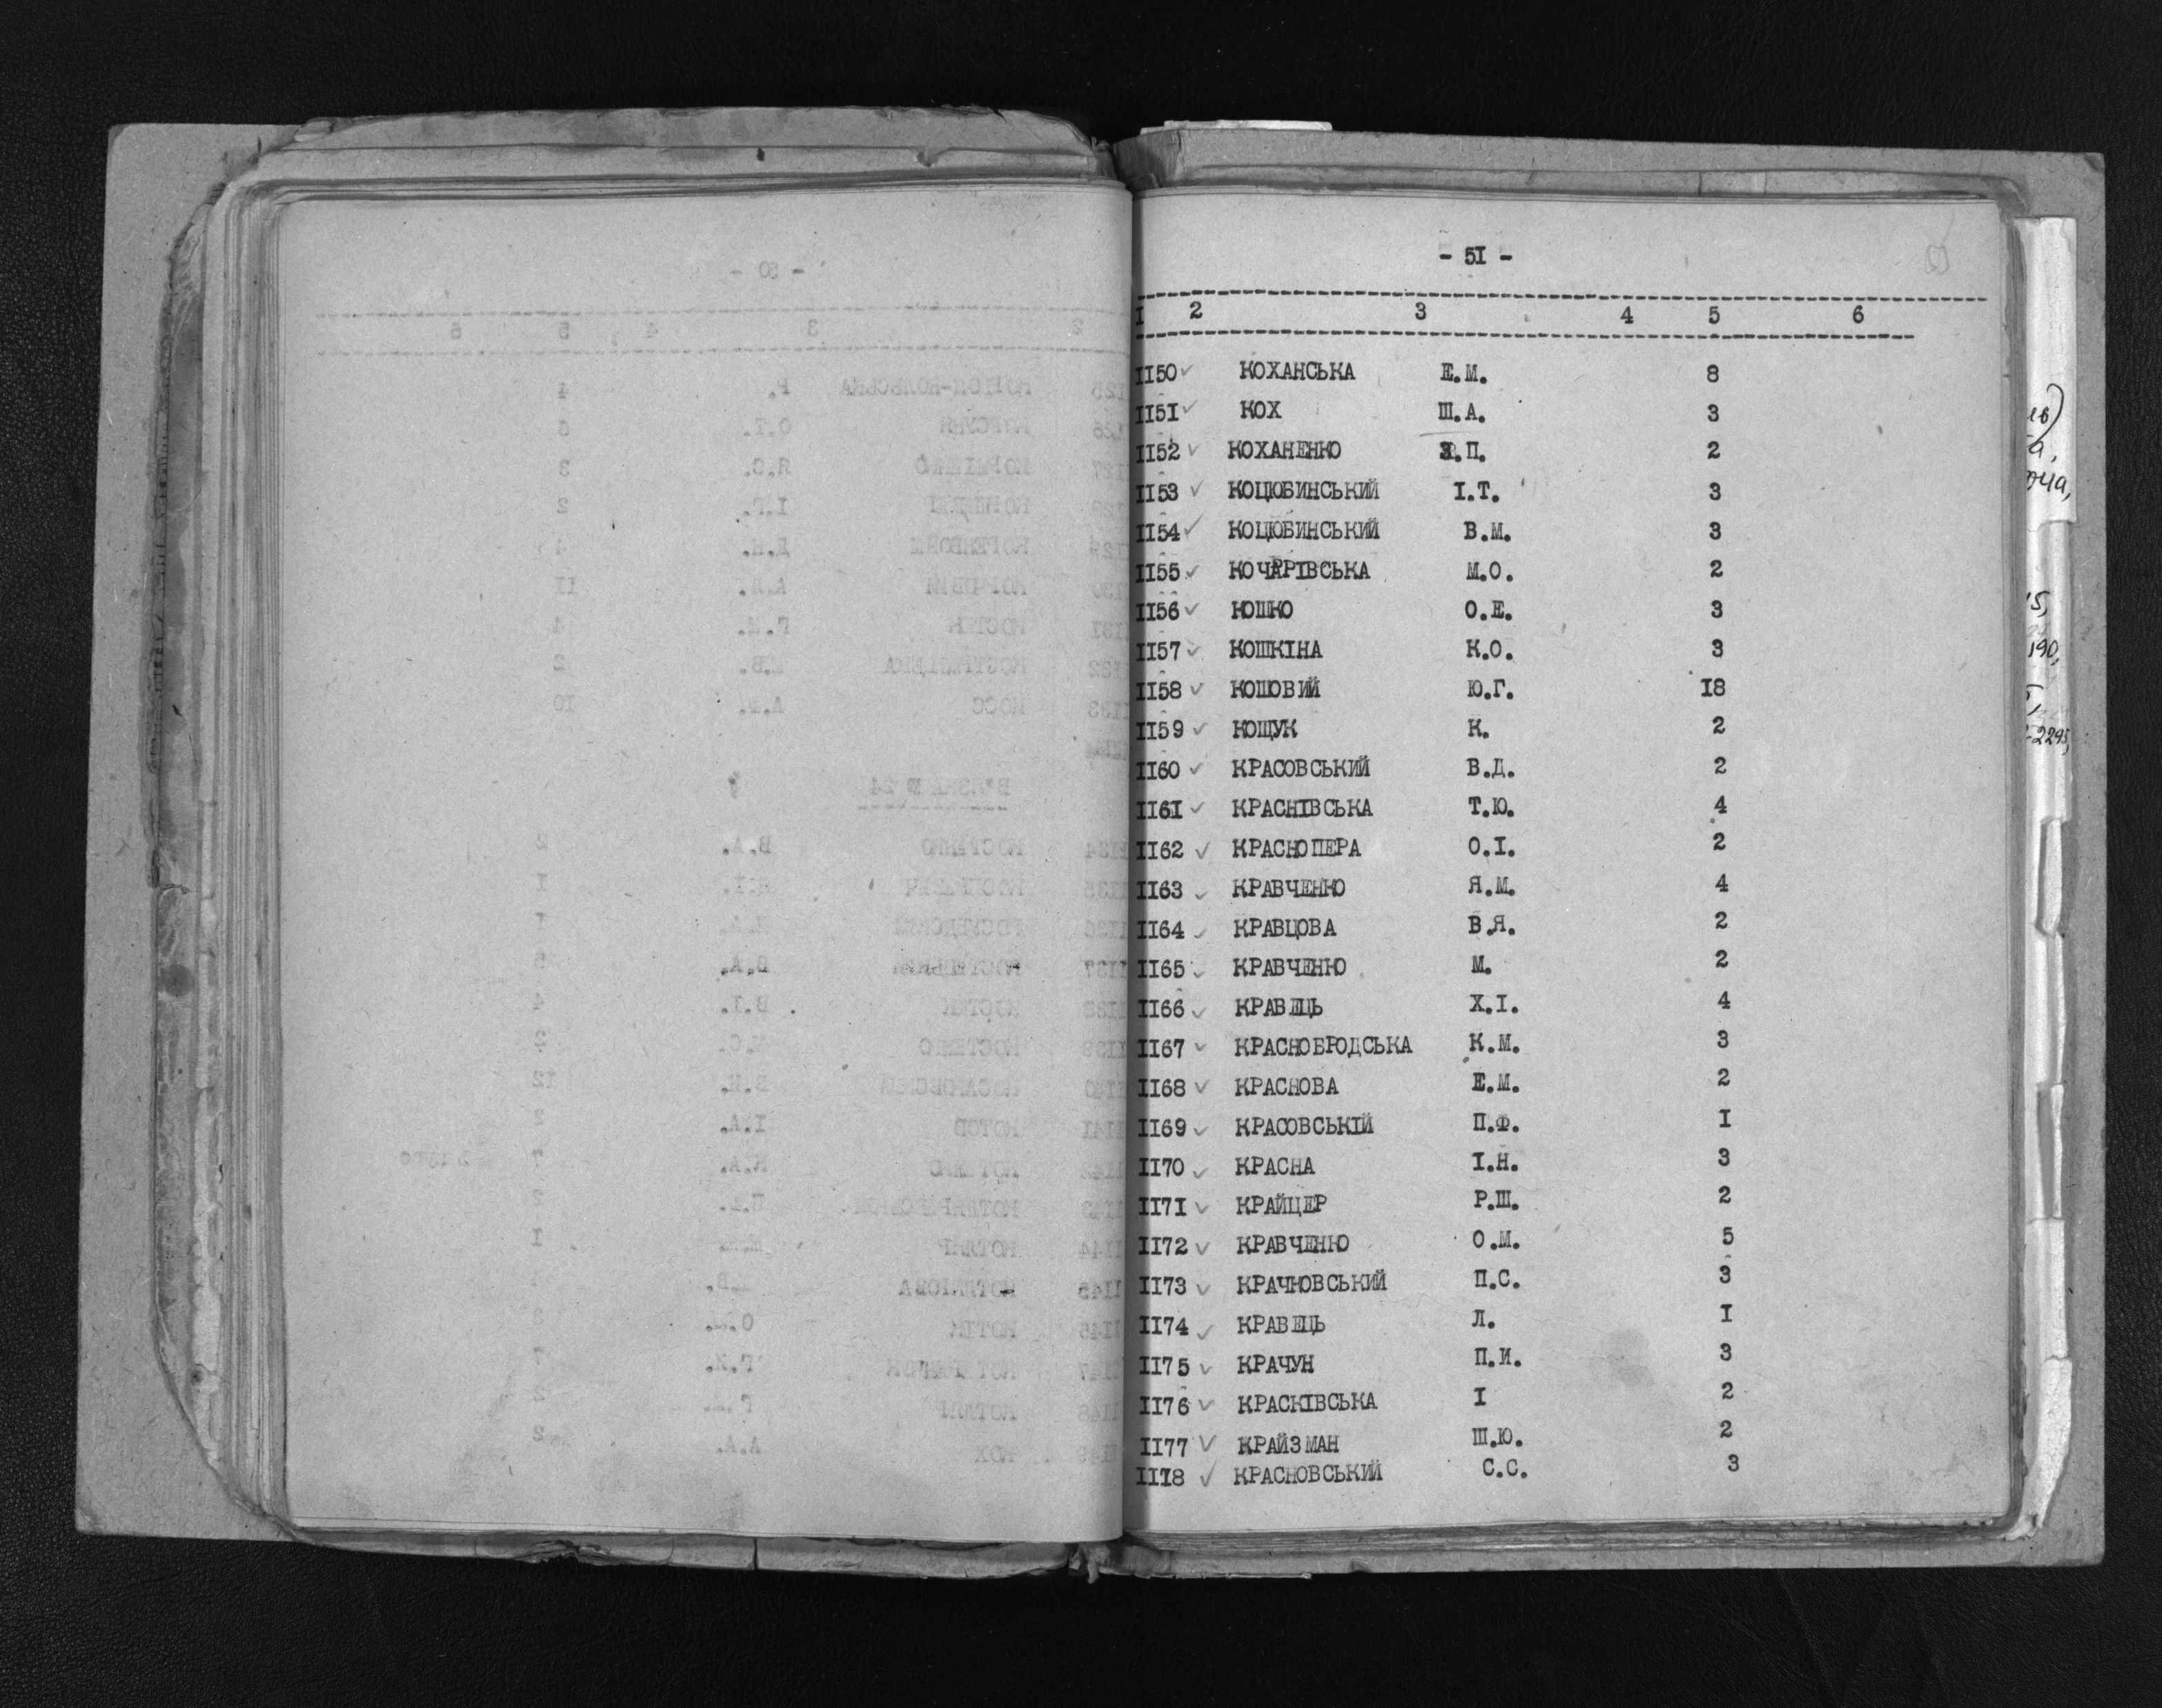 - 5I -
I 2 3 4 5 6
II50 КОХАНСЬКА Е.М. 8
II5I КОХ Ш.А. 3
II52 КОХАНЕНКО З.П. 2
II53 КОЦЮБИНСЬКИЙ І.Т. 3
II54 КОЦЮБИНСЬКИЙ В.М. 3
II55 КОЧАРІВСЬКА М.О. 2
II56 КОШКО О.Е. 3
II57 КОШКІНА К.О. 3
II58 КОШОВИЙ Ю.Г. I8
II59 КОЩУК К. 2
II60 КРАСОВСЬКИЙ В.Д. 2
II6I КРАСНІВСЬКА Т.Ю. 4
II62 КРАСНОПЕРА О.І. 2
II63 КРАВЧЕНКО Я.М. 4
II64 КРАВЦОВА В.Я. 2
II65 КРАВЧЕНКО М. 2
II66 КРАВЕЦЬ Х.І. 4
II67 КРАСНОБРОДСЬКА К.М. 3
II68 КРАСНОВА Е.М. 2
II69 КРАСОВСЬКІЙ П.Ф. I
II70 КРАСНА І.Н. 3
II7I КРАЙЦЕР Р.Ш. 2
II72 КРАВЧЕНКО О.М. 5
II73 КРАЧКОВСЬКИЙ П.С. 3
II74 КРАВЕЦЬ Л. I
II75 КРАЧУН П.И. 3
II76 КРАСКІВСЬКА І 2
II77 КРАЙЗМАН Ш.Ю. 2
III8 КРАСНОВСЬКИЙ С.С. 3
190,
-2295,